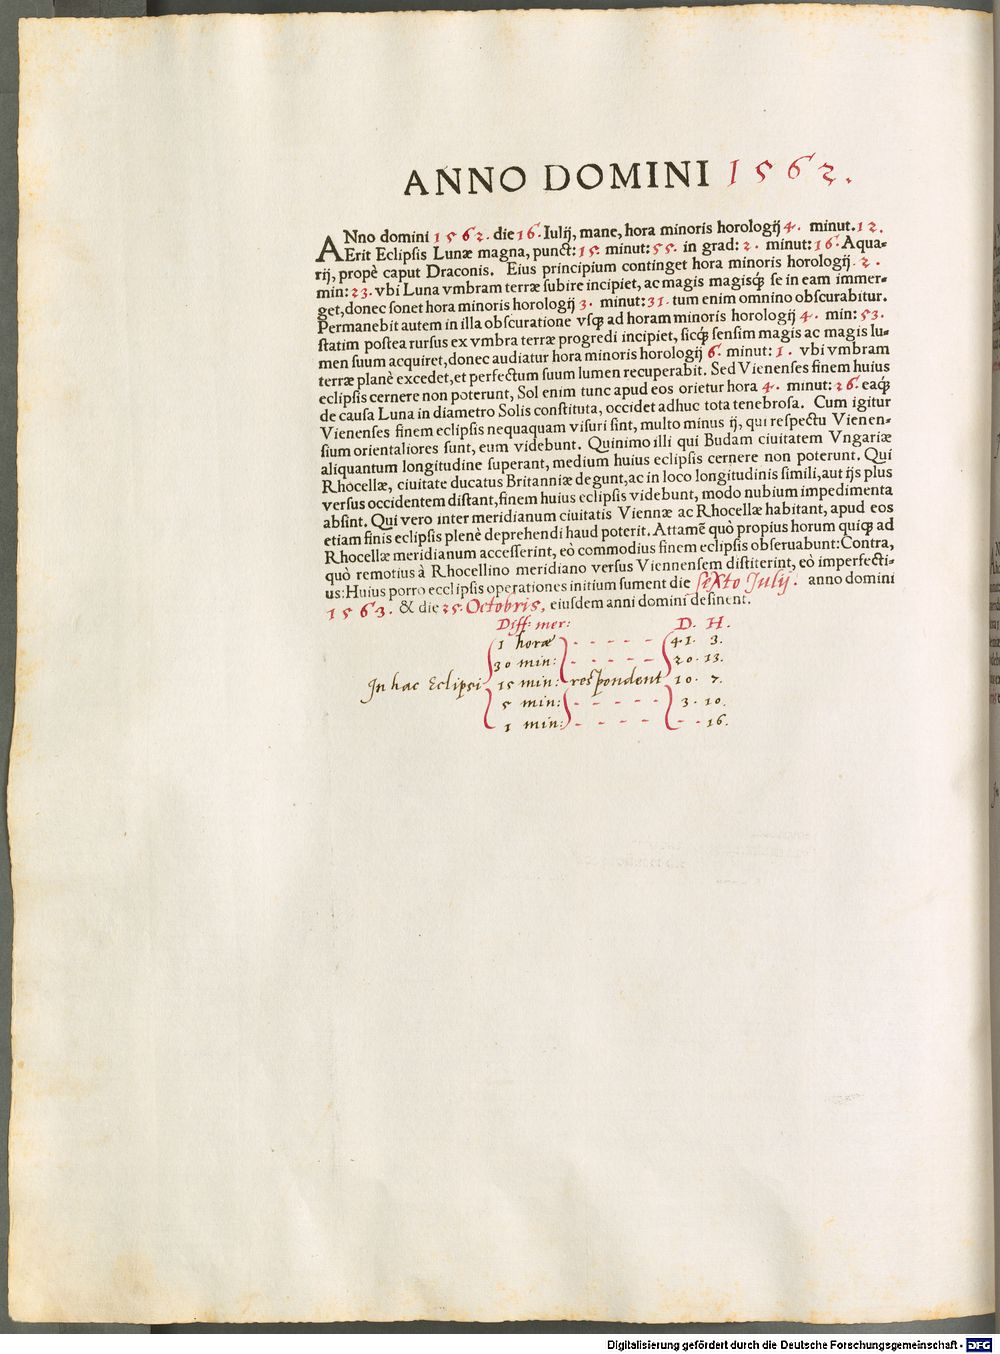 ANNO DOMINI 1562.
ANno domini 1562. die 16. Iulij, mane, hora minoris horologij 4. minut. 12.
Erit Eclipsis Lunæ magna, punct: 15. minut: 55. in grad: 2. minut: 16. Aqua-
rij, propè caput Draconis. Eius principium continget hora minoris horologij. 2.
min: 23. vbi Luna vmbram terræ subire incipiet, ac magis magisq́ se in eam immer-
get, donec sonet hora minoris horologij 3. minut: 31. tum enim omnino obscurabitur.
Permanebit autem in illa obscuratione vsq ad horam minoris horologij 4. min: 53.
statim postea rursus ex vmbra terræ progredi incipiet, sicq́ sensim magis ac magis lu-
men suum acquiret, donec audiatur hora minoris horologij 6. minut: 1. vbi vmbram
terræ planè excedet, et perfectum suum lumen recuperabit. Sed Vienenses finem huius
eclipsis cernere non poterunt, Sol enim tunc apud eos orietur hora 4. minut: 26. eaq́
de causa Luna in diametro Solis constituta, occidet adhuc tota tenebrosa. Cum igitur
Vienenses finem eclipsis nequaquam visuri sint, multo minus ij, qui respectu Vienen-
sium orientaliores sunt, eum videbunt. Quinimo illi qui Budam ciuitatem Vngariæ
aliquantum longitudine superant, medium huius eclipsis cernere non poterunt. Qui
Rhocellæ, ciuitate ducatus Britanniæ degunt, ac in loco longitudinis simili, aut ijs plus
versus occidentem distant, finem huius eclipsis videbunt, modo nubium impedimenta
absint. Qui vero inter meridianum ciuitatis Viennæ ac Rhocellæ habitant, apud eos
etiam finis eclipsis plenè deprehendi haud poterit. Attamẽ quò propius horum quiq ad
Rhocellæ meridianum accesserint, eò commodius finem eclipsis obseruabunt: Contra,
quò remotius à Rhocellino meridiano versus Viennensem distiterint, eò imperfecti-
us: Huius porro ecclipsis operationes initium sument die sexto Julij. anno domini
1563. & die 25. Octobris, eiusdem anni domini desinent.
Diff: mer: D. H.
1 horæ - - - - - 41. 3.
30 min: - - - - - 20. 13.
In hac Eclipsi 15 min: respondent 10. 7.
5 min: - - - - - 3. 10.
1 min: - - - - - - - 16.
Digitalisierung gefördert durch die Deutsche Forschungsgemeinschaft - DFG